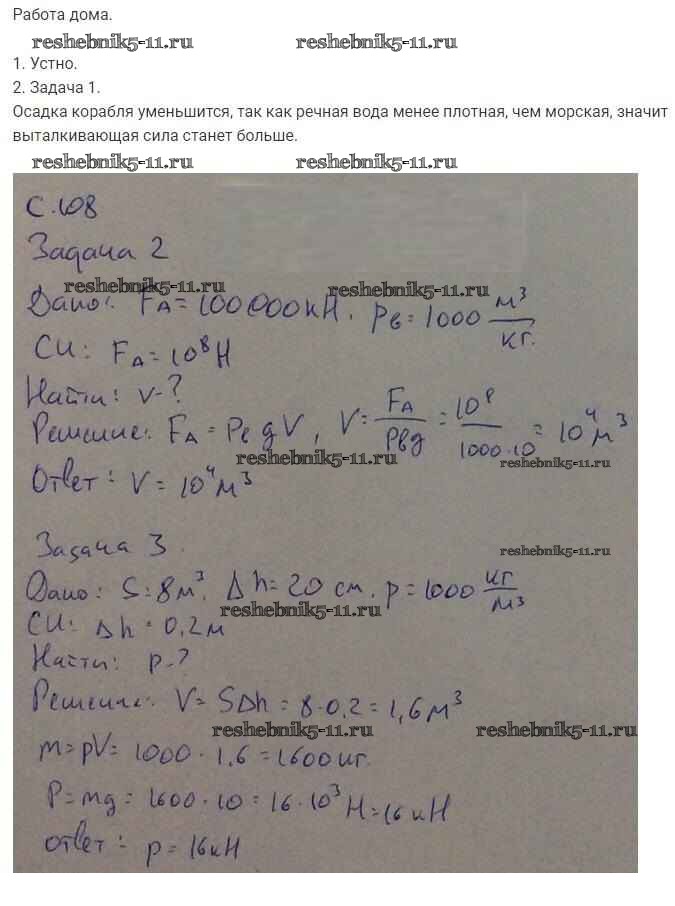 Работа дома.
reshebnik5-11.ru reshebnik5-11.ru
1. Устно.
2. Задача 1.
Осадка корабля уменьшится, так как речная вода менее плотная, чем морская, значит
выталкивающая сила станет больше.
reshebnik5-11.ru reshebnik5-11.ru
С.108
Задача 2
reshebnik5-11.ru reshebnik5-11.ru
Дано: FА = 100000кН. ρв = 1000 м³/кг.
СИ: FА = 10⁸ Н
Найти: V-?
Решение: FА = ρв g V, V = FА/ρвg = 10⁸/1000·10 = 10⁴ м³
reshebnik5-11.ru reshebnik5-11.ru
Ответ: V = 10⁴ м³
Задача 3.
reshebnik5-11.ru
Дано: S = 8 м³. Δh = 20 см. ρ = 1000 кг/м³
reshebnik5-11.ru
СИ: Δh = 0,2 м
Найти: P-?
Решение: V = SΔh = 8·0,2 = 1,6 м³
reshebnik5-11.ru reshebnik5-11.ru
m = ρV = 1000 · 1,6 = 1600 кг.
P = mg = 1600 · 10 = 16·10³ Н = 16 кН
ответ: p = 16кН